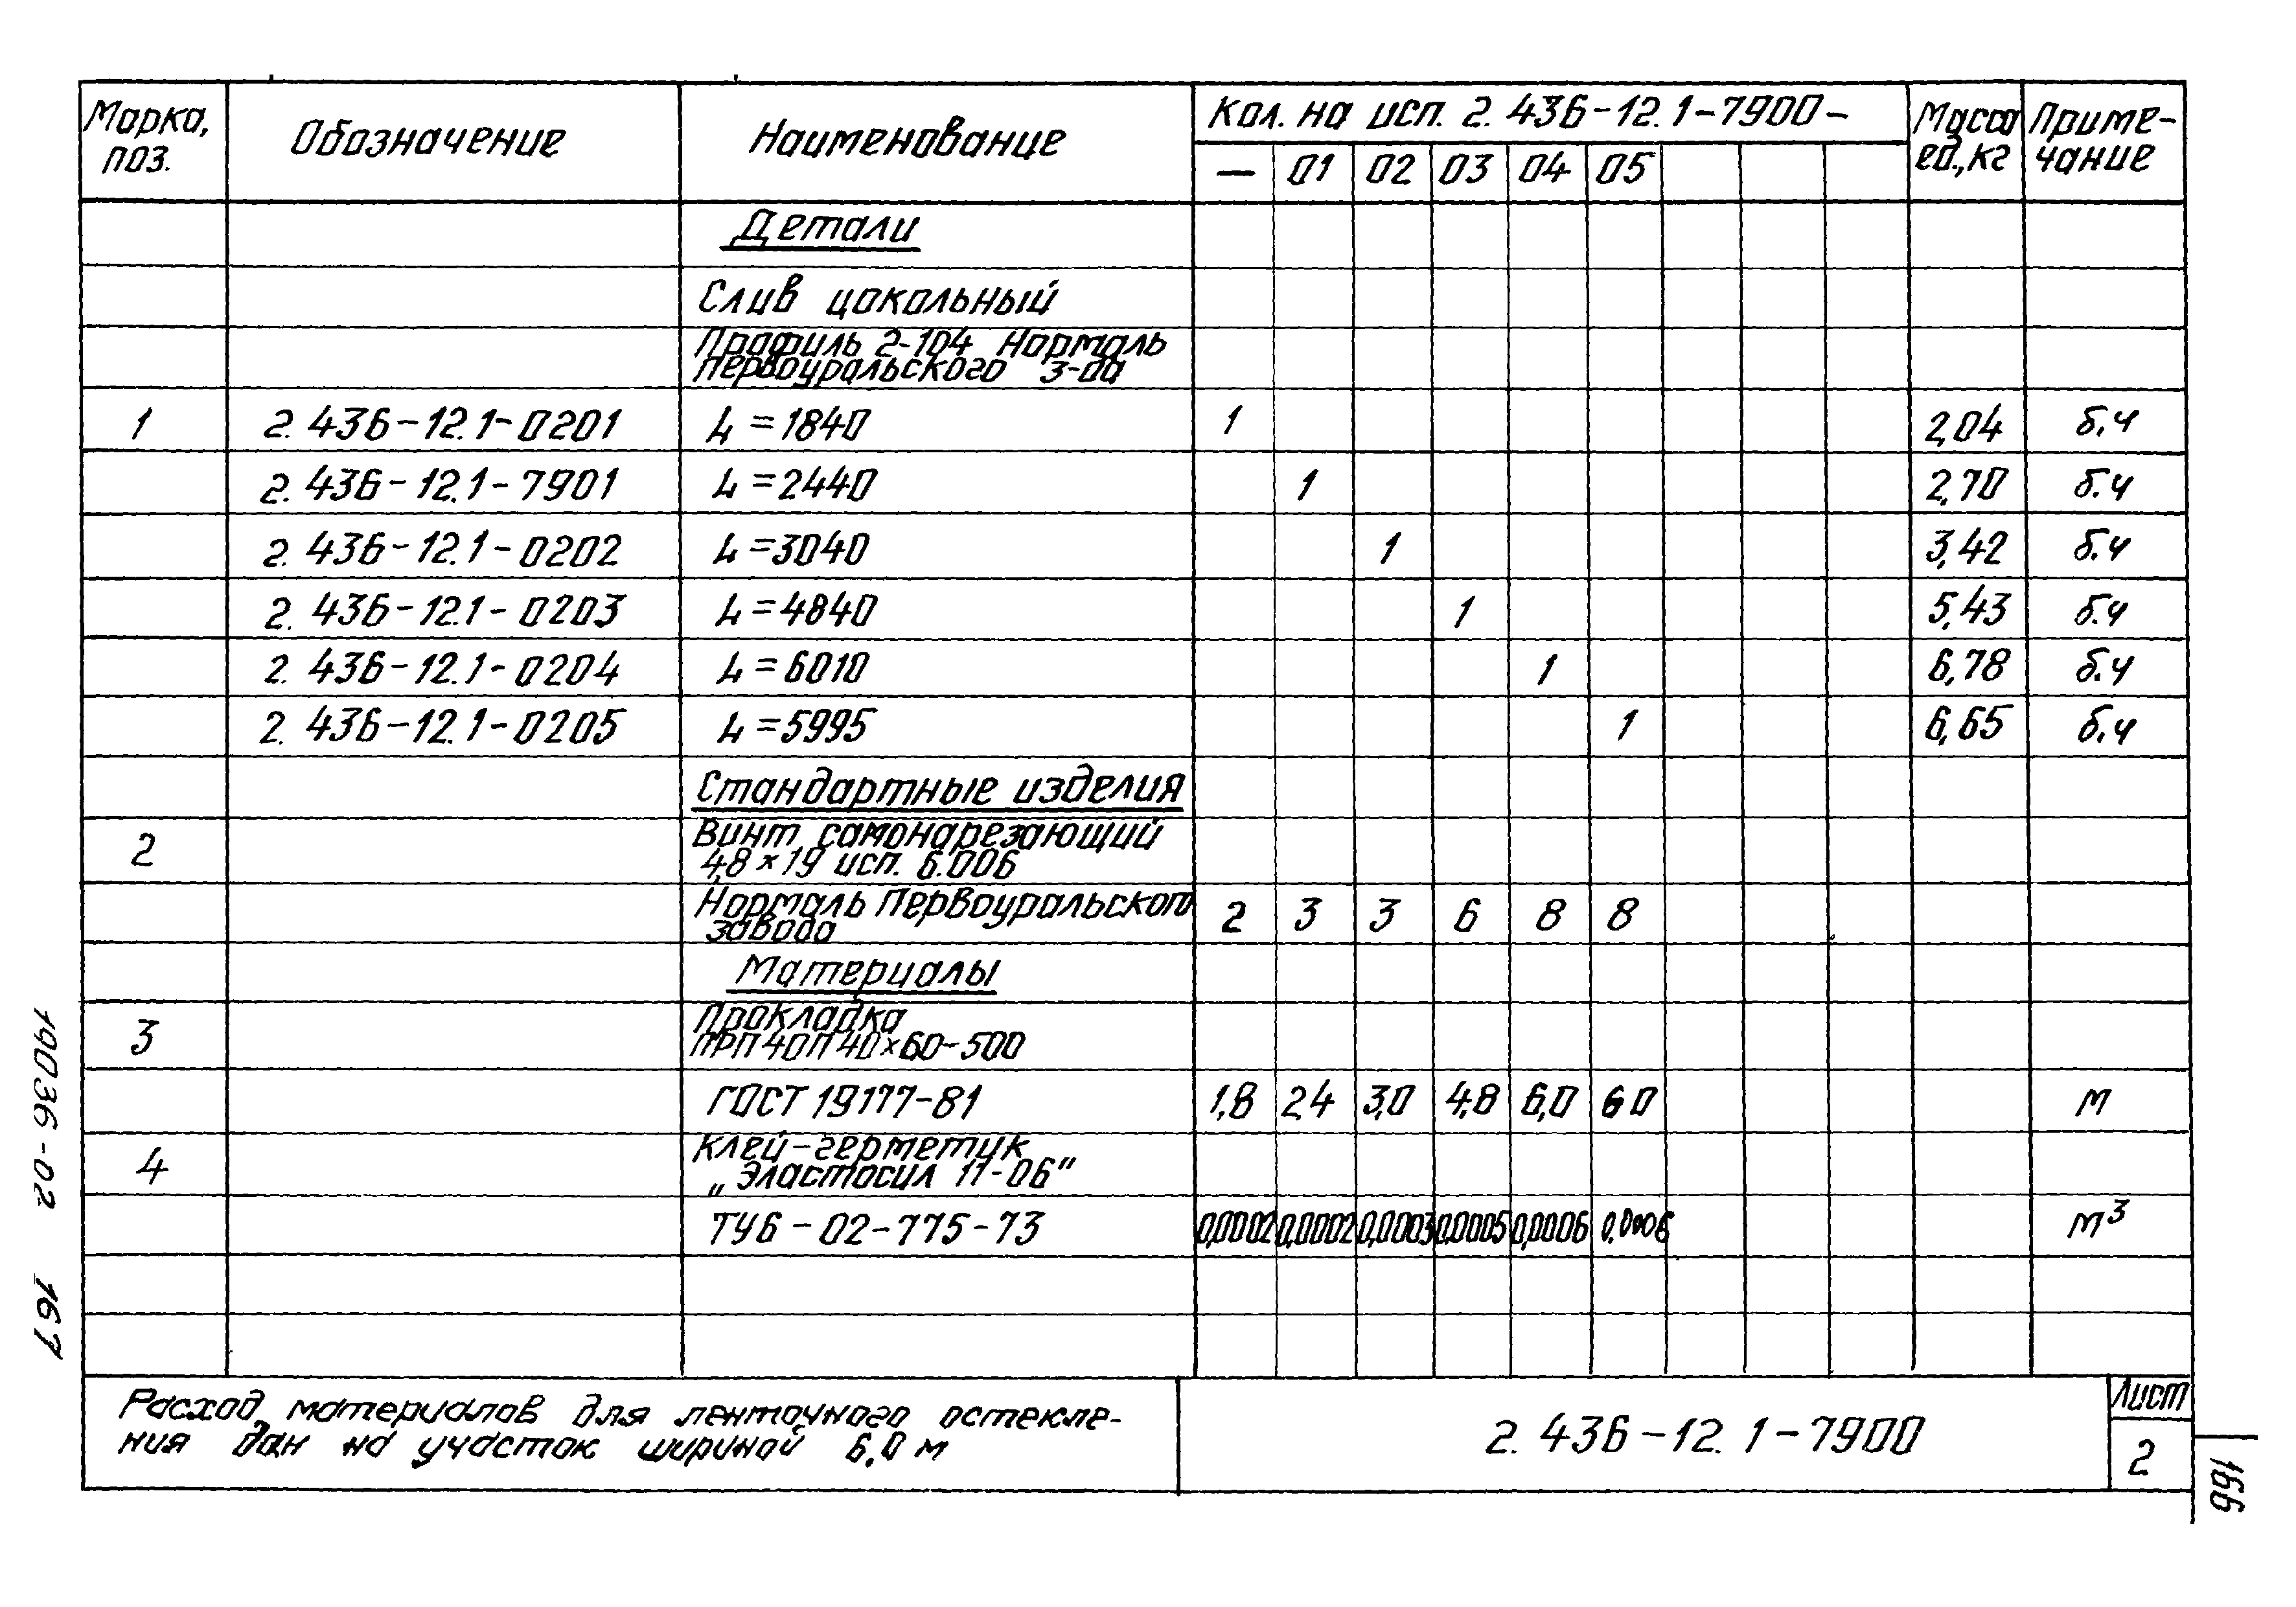 Марка, поз. Обозначение Наименование Кол. на исп. 2.436-12.1-7900- Масса ед., кг Примечание
— 01 02 03 04 05
Детали
Слив цокольный
Профиль 2-104 Нормаль
Первоуральского з-да
1 2.436-12.1-0201 L=1840 1 2,04 б.ч
2.436-12.1-7901 L=2440 1 2,70 б.ч
2.436-12.1-0202 L=3040 1 3,42 б.ч
2.436-12.1-0203 L=4840 1 5,43 б.ч
2.436-12.1-0204 L=6010 1 6,78 б.ч
2.436-12.1-0205 L=5995 1 6,65 б.ч
Стандартные изделия
2 Винт самонарезающий
4,8×19 исп. 6.006
Нормаль Первоуральского
завода 2 3 3 6 8 8
Материалы
3 Прокладка
ПРП 40П 40×60-500
ГОСТ 19177-81 1,8 2,4 3,0 4,8 6,0 6 0 м
4 Клей-герметик
„Эластосил 11-06"
ТУ6-02-775-73 0,0002 0,0002 0,0003 0,0005 0,0006 0,0006 м³
Расход материалов для ленточного остекле-
ния дан на участок шириной 6,0 м
2.436-12.1-7900
Лист
2
19036-02 167
166